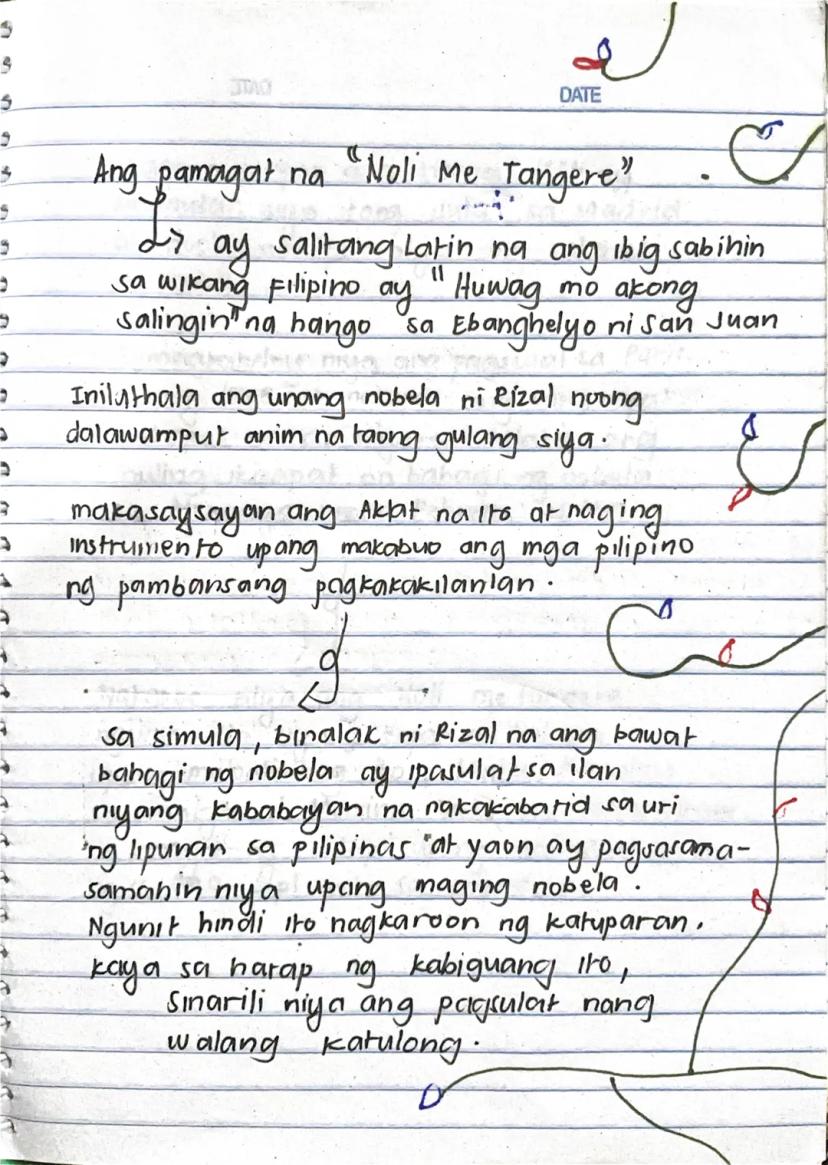 DATE
Ang pamagat na "Noli Me Tangere"
ay salitang Latin na ang ibig sabihin
sa wikang Filipino ay "Huwag mo akong
salingin" na hango sa Ebanghelyo ni San Juan
Inilathala ang unang nobela ni Rizal noong
dalawamput anim na taong gulang siya.
makasaysayan ang Aklat na ito at naging
instrumento upang makabuo ang mga pilipino
ng pambansang pagkakakilanlan.
sa simula, binalak ni Rizal na ang bawat
bahagi ng nobela ay ipasulat sa ilan
niyang kababayan na nakakabatid sa uri
ng lipunan sa pilipinas at yaon ay pagsasama-
samahin niya upang maging nobela.
Ngunit hindi ito nagkaroon ng katuparan.
kaya sa harap ng kabiguang ito,
sinarili niya ang pagsulat nang
walang katulong.